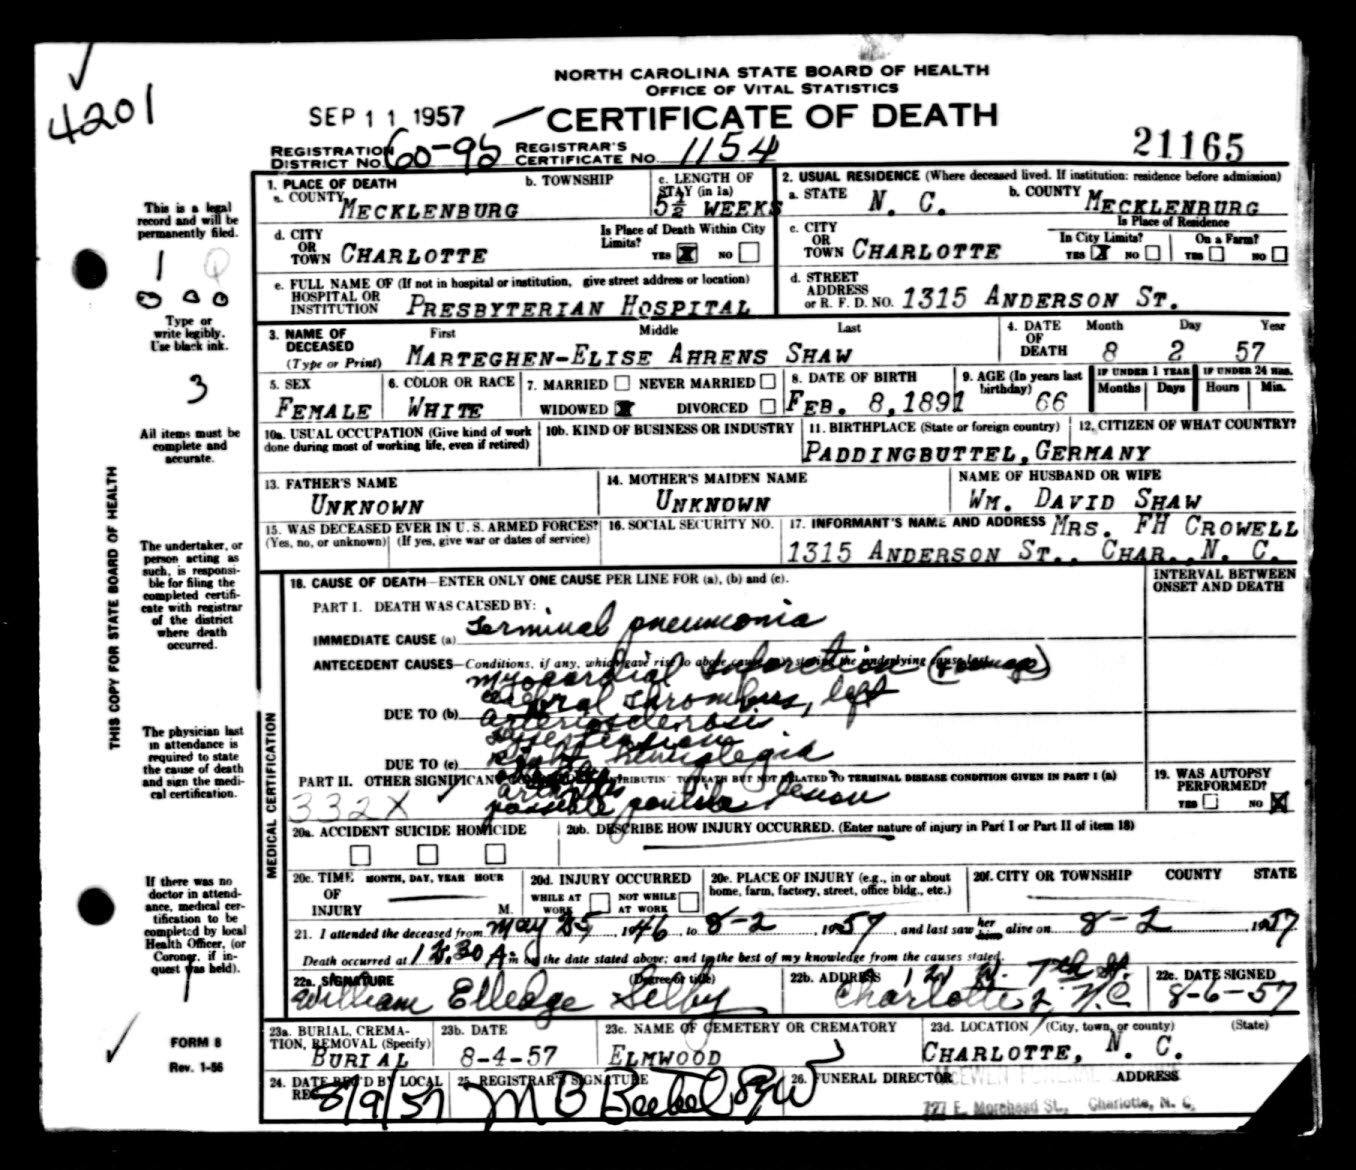 4201
NORTH CAROLINA STATE BOARD OF HEALTH
OFFICE OF VITAL STATISTICS
SEP 11 1957
CERTIFICATE OF DEATH
21165
REGISTRATION DISTRICT NO. 60-95 REGISTRAR'S CERTIFICATE NO. 1154
1. PLACE OF DEATH
a. COUNTY MECKLENBURG
b. TOWNSHIP
c. LENGTH OF STAY (in 1a) 5½ WEEKS
2. USUAL RESIDENCE (Where deceased lived. If institution: residence before admission)
a. STATE N. C.
b. COUNTY MECKLENBURG
d. CITY OR TOWN CHARLOTTE
Is Place of Death Within City Limits? YES NO
c. CITY OR TOWN CHARLOTTE
Is Place of Residence
In City Limits? YES NO
On a Farm? YES NO
e. FULL NAME OF HOSPITAL OR INSTITUTION (If not in hospital or institution, give street address or location)
PRESBYTERIAN HOSPITAL
d. STREET ADDRESS or R. F. D. NO. 1315 ANDERSON ST.
3. NAME OF DECEASED (Type or Print)
First Middle Last
MARTEGHEN-ELISE AHRENS SHAW
4. DATE OF DEATH Month Day Year
8 2 57
5. SEX FEMALE
6. COLOR OR RACE WHITE
7. MARRIED NEVER MARRIED
WIDOWED DIVORCED
8. DATE OF BIRTH FEB. 8,1891
9. AGE (In years last birthday) 66
IF UNDER 1 YEAR Months Days
IF UNDER 24 HRS. Hours Min.
10a. USUAL OCCUPATION (Give kind of work done during most of working life, even if retired)
10b. KIND OF BUSINESS OR INDUSTRY
11. BIRTHPLACE (State or foreign country)
PADDINGBUTTEL, GERMANY
12. CITIZEN OF WHAT COUNTRY?
13. FATHER'S NAME
UNKNOWN
14. MOTHER'S MAIDEN NAME
UNKNOWN
NAME OF HUSBAND OR WIFE
WM. DAVID SHAW
15. WAS DECEASED EVER IN U. S. ARMED FORCES?
(Yes, no, or unknown) (If yes, give war or dates of service)
16. SOCIAL SECURITY NO.
17. INFORMANT'S NAME AND ADDRESS MRS. FH CROWELL
1315 ANDERSON ST., CHAR., N. C.
18. CAUSE OF DEATH—ENTER ONLY ONE CAUSE PER LINE FOR (a), (b) and (c).
INTERVAL BETWEEN ONSET AND DEATH
PART I. DEATH WAS CAUSED BY:
IMMEDIATE CAUSE (a) Terminal pneumonia
ANTECEDENT CAUSES—Conditions, if any, which gave rise to above cause (a) stating the underlying cause last.
myocardial infarction
cerebral thrombus, left
DUE TO (b) arteriosclerosis
hypertension
DUE TO (c) right hemiplegia
PART II. OTHER SIGNIFICANT CONDITIONS CONTRIBUTING TO DEATH BUT NOT RELATED TO TERMINAL DISEASE CONDITION GIVEN IN PART I (a)
arthritis
332X
possible lesion
19. WAS AUTOPSY PERFORMED? YES NO
20a. ACCIDENT SUICIDE HOMICIDE
20b. DESCRIBE HOW INJURY OCCURRED. (Enter nature of injury in Part I or Part II of item 18)
20c. TIME OF INJURY MONTH, DAY, YEAR HOUR M.
20d. INJURY OCCURRED WHILE AT WORK NOT WHILE AT WORK
20e. PLACE OF INJURY (e.g., in or about home, farm, factory, street, office bldg., etc.)
20f. CITY OR TOWNSHIP COUNTY STATE
21. I attended the deceased from May 25, 1946, to 8-2, 1957, and last saw her him alive on 8-2 1957
Death occurred at 12:30 A. m on the date stated above; and to the best of my knowledge from the causes stated.
22a. SIGNATURE (Degree or title)
William Elledge Selby
22b. ADDRESS 121 W. 7th St.
Charlotte 2, N.C.
22c. DATE SIGNED
8-6-57
23a. BURIAL, CREMATION, REMOVAL (Specify)
BURIAL
23b. DATE
8-4-57
23c. NAME OF CEMETERY OR CREMATORY
ELMWOOD
23d. LOCATION (City, town, or county) (State)
CHARLOTTE, N. C.
24. DATE REC'D BY LOCAL REG. 8/9/57
25. REGISTRAR'S SIGNATURE
26. FUNERAL DIRECTOR ADDRESS
727 E. Morehead St., Charlotte, N. C.
This is a legal
record and will be
permanently filed.
1
Type or
write legibly.
Use black ink.
3
All items must be
complete and
accurate.
The undertaker, or
person acting as
such, is responsi-
ble for filing the
completed certifi-
cate with registrar
of the district
where death
occurred.
The physician last
in attendance is
required to state
the cause of death
and sign the medi-
cal certification.
If there was no
doctor in attend-
ance, medical cer-
tification to be
completed by local
Health Officer, (or
Coroner, if in-
quest was held).
FORM 8
Rev. 1-56
THIS COPY FOR STATE BOARD OF HEALTH
MEDICAL CERTIFICATION